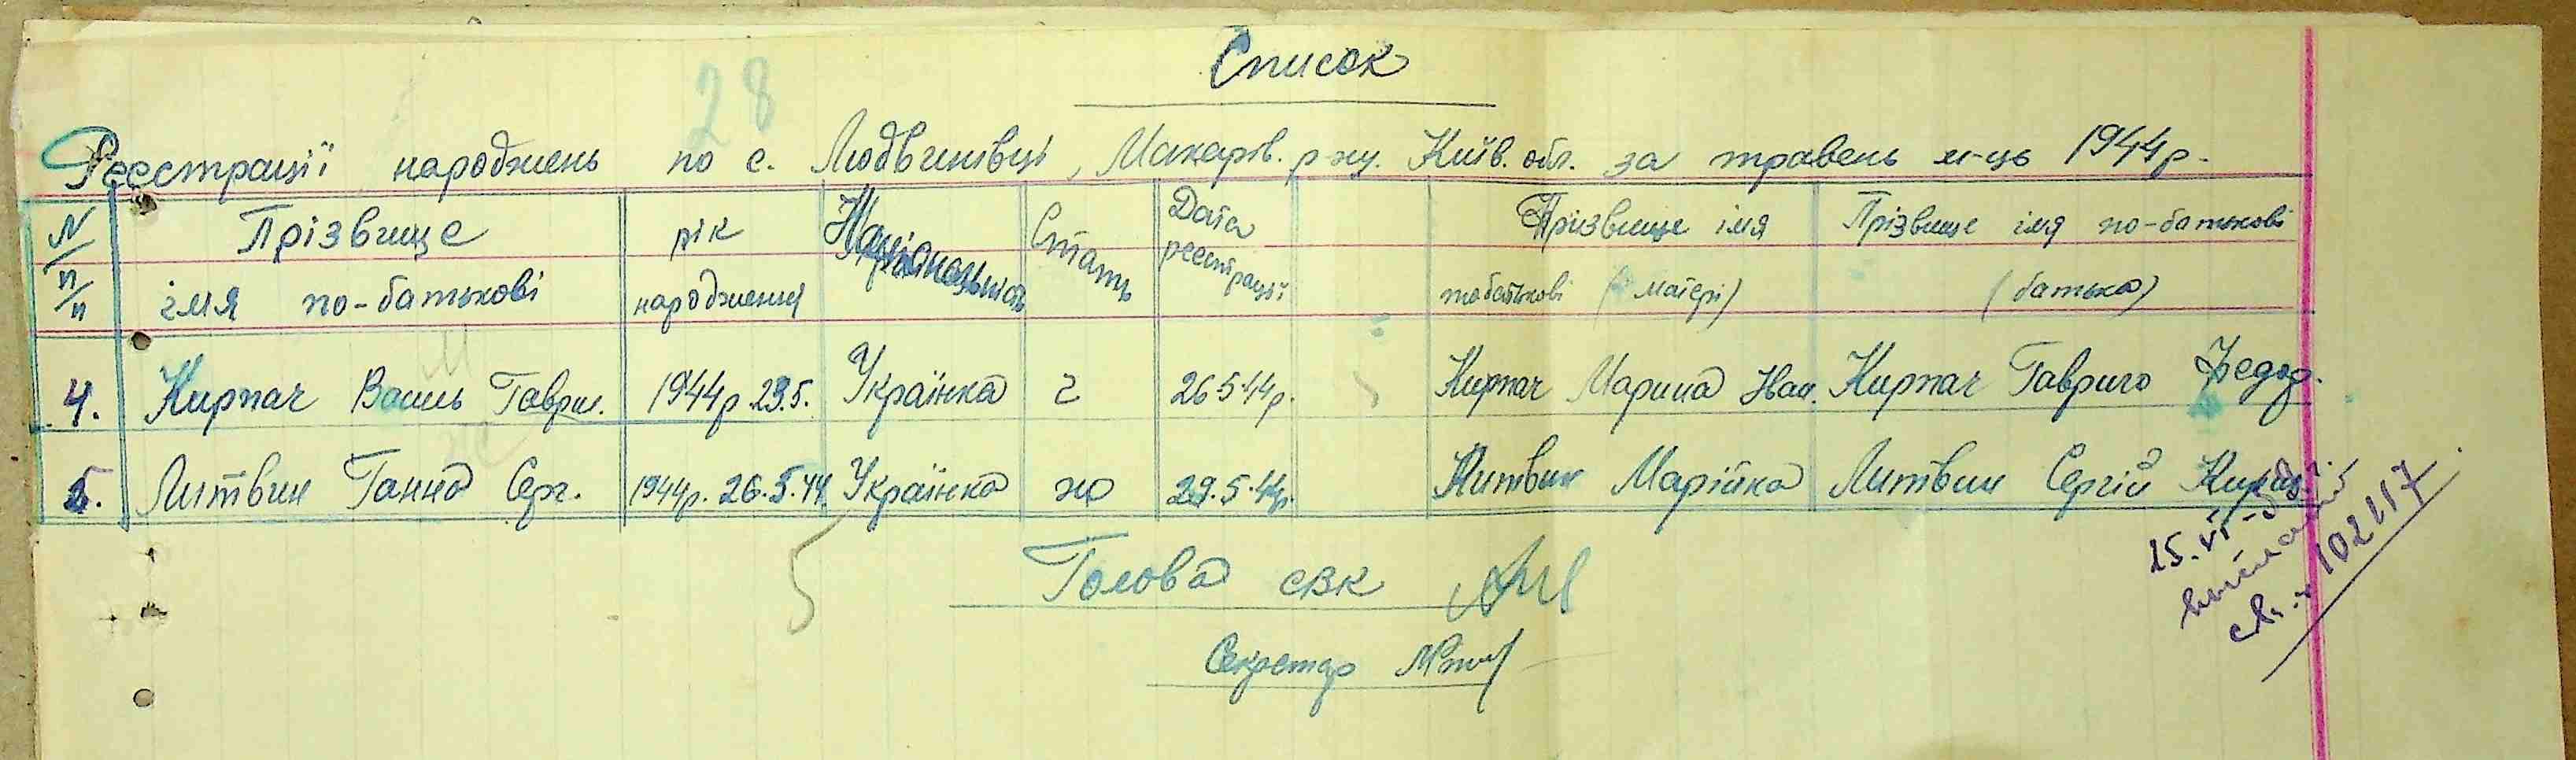 28
Список
Реєстрації народжень по с. Людвинівці, Макарів. р-ну. Київ. обл. за травень м-ць 1944р.
N п/п Прізвище імя по-батькові рік народження Національність Стать Дата реєстрації Прізвище імя побатькові (матері) Прізвище імя по-батькові (батька)
4. Кирпач Василь Гаврил. 1944р. 23.5. Українка ч 26.5.44р. Кирпач Марина Кирпач Гаврило Федор.
5. Литвин Ганна Серг. 1944р. 26.5.44. Українка ж 29.5.44р. Литвин Марійка Литвин Сергій
5
Голова СВК
Секретар
15.VI
св. № 102117